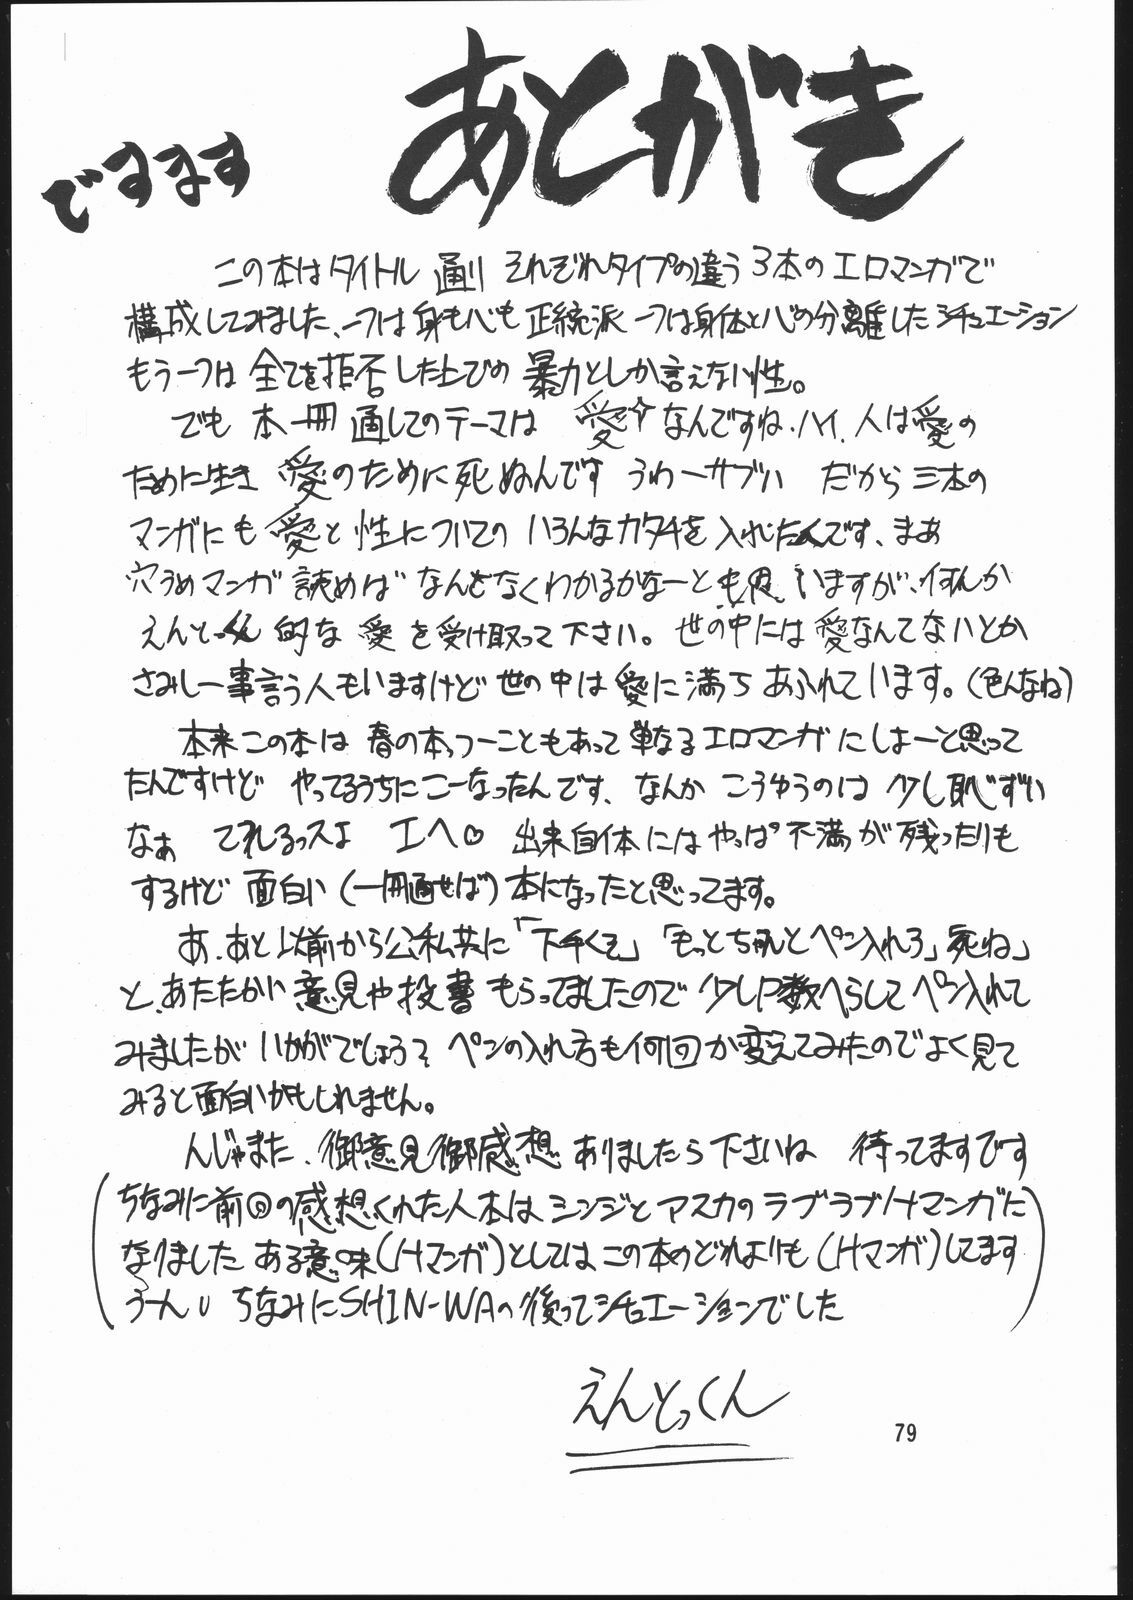 あとがき
ですます
この本はタイトル通り それぞれタイプの違う3本のエロマンガで
構成してみました、一つは身も心も正統派 一つは身体と心の分離したシチュエーション
もう一つは 全てを拒否した上での 暴力としか言えない性。
でも 本一冊 通してのテーマは 愛☆なんですね、ハイ、人は愛の
ために生き 愛のために死ぬんです うわーサブい だから三本の
マンガにも愛と性についての いろんなカタチを入れたんです、まあ
穴うめマンガ読めば なんとなくわかるかなーとも思いますが、何んか
えんとっくん的な 愛を受け取って下さい。世の中には愛なんてないとか
さみしー事言う人もいますけど世の中は愛に満ちあふれています。(色んなね)
本来この本は 春の本っつーこともあって単なるエロマンガにしよーと思って
たんですけど やってるうちにこーなったんです、なんか こうゆうのは少し恥ずい
なぁ てれるっスよ エヘ♡ 出来自体にはやっぱ不満が残ったりも
するけど 面白い(一冊通せば)本になったと思ってます。
あ、あと以前から公私共に「下手くそ」「もっとちゃんとペン入れろ」死ね」
と、あたたかい意見や投書もらってましたので 少しP数へらしてペン入れて
みましたが いかがでしょう? ペンの入れ方も何回か変えてみたのでよく見て
みると面白いかもしれません。
んじゃまた、御意見御感想ありましたら下さいね 待ってますです
(ちなみに前回の感想くれた人本はシンジとアスカのラブラブHマンガに
なりました ある意味(Hマンガ)としてはこの本のどれよりも(Hマンガ)してます
うーん ちなみにSHIN-WAの後ってシチュエーションでした)
えんとっくん
79